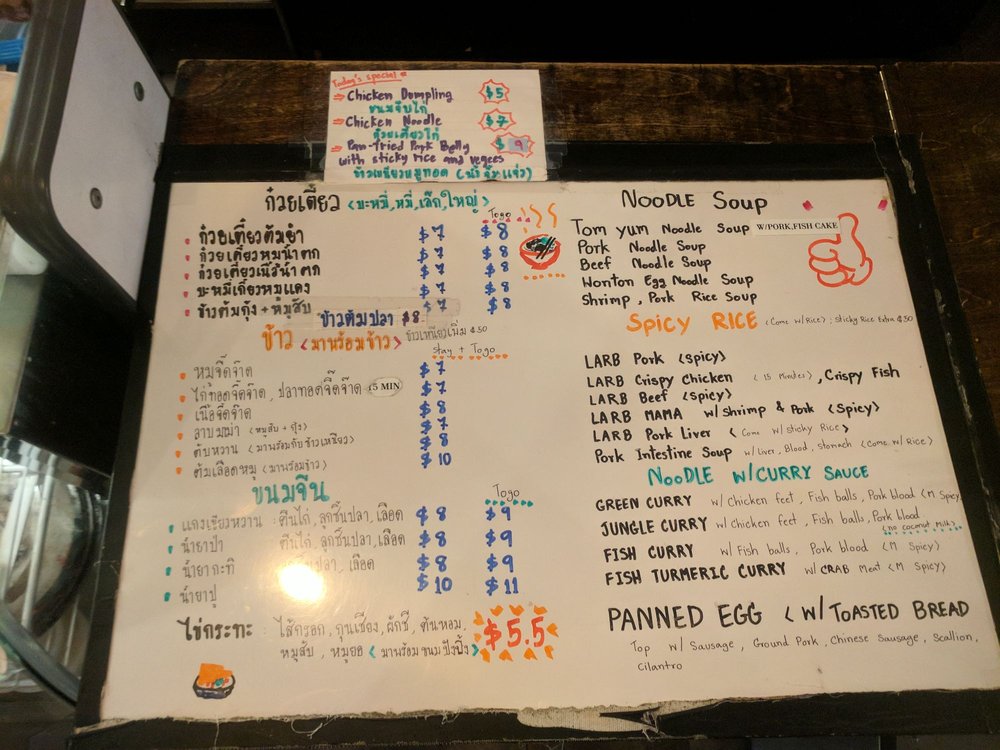 Today's special
⇒ Chicken Dumpling $5
ขนมจีบไก่
⇒ Chicken Noodle $7
ก๋วยเตี๋ยวไก่
⇒ Pan-Fried Pork Belly $9
with sticky rice and vegees
ข้าวเหนียวหมูทอด (น้ำจิ้มแจ่ว)
ก๋วยเตี๋ยว <บะหมี่,หมี่,เล็ก,ใหญ่>
Togo
ก๋วยเตี๋ยวต้มยำ $7 $8
ก๋วยเตี๋ยวหมูน้ำตก $7 $8
ก๋วยเตี๋ยวเนื้อน้ำตก $7 $8
บะหมี่เกี๊ยวหมูแดง $7 $8
ข้าวต้มกุ้ง + หมูสับ $7 $8
ข้าวต้มปลา $8
ข้าว <มาพร้อมข้าว> ข้าวเหนียวเพิ่ม $.50
Stay + Togo
หมูจี๊ดจ๊าด $7
ไก่ทอดจี๊ดจ๊าด, ปลาทอดจี๊ดจ๊าด 15 MIN $7
เนื้อจี๊ดจ๊าด $8
ลาบมาม่า <หมูสับ + กุ้ง> $7
ตับหวาน <มาพร้อมกับข้าวเหนียว> $8
ต้มเลือดหมู <มาพร้อมข้าว> $10
ขนมจีน
Togo
แกงเขียวหวาน : ตีนไก่, ลูกชิ้นปลา, เลือด $8 $9
น้ำยาป่า : ตีนไก่, ลูกชิ้นปลา, เลือด $8 $9
น้ำยากะทิ ปลา, เลือด $8 $9
น้ำยาปู $10 $11
ไข่กระทะ : ไส้กรอก, กุนเชียง, ผักชี, ต้นหอม, $5.5
หมูสับ, หมูยอ <มาพร้อมขนมปังปิ้ง>
NOODLE Soup
Tom yum Noodle Soup W/PORK,FISH CAKE
Pork Noodle Soup
Beef Noodle Soup
Wonton Egg Noodle Soup
Shrimp, Pork Rice Soup
Spicy RICE (Come w/Rice) : Sticky Rice Extra $.50
LARB Pork <spicy>
LARB Crispy Chicken (15 Minutes), Crispy Fish
LARB Beef <spicy>
LARB MAMA w/shrimp & Pork <Spicy>
LARB Pork Liver <Come w/sticky Rice>
Pork Intestine Soup w/Liver, Blood, stomach <Come w/Rice>
NooDLE W/CURRY SAUCE
GREEN CURRY w/Chicken feet, Fish balls, Pork blood <M Spicy
JUNGLE CURRY w/Chicken feet, Fish balls, Pork blood
<no coconut milk>
FISH CURRY w/Fish balls, Pork blood <M Spicy>
FISH TURMERIC CURRY w/CRAB Meat <M Spicy>
PANNED EGG < W/ToASTED BREAD
Top w/Sausage, Ground Pork, Chinese Sausage, Scallion,
Cilantro